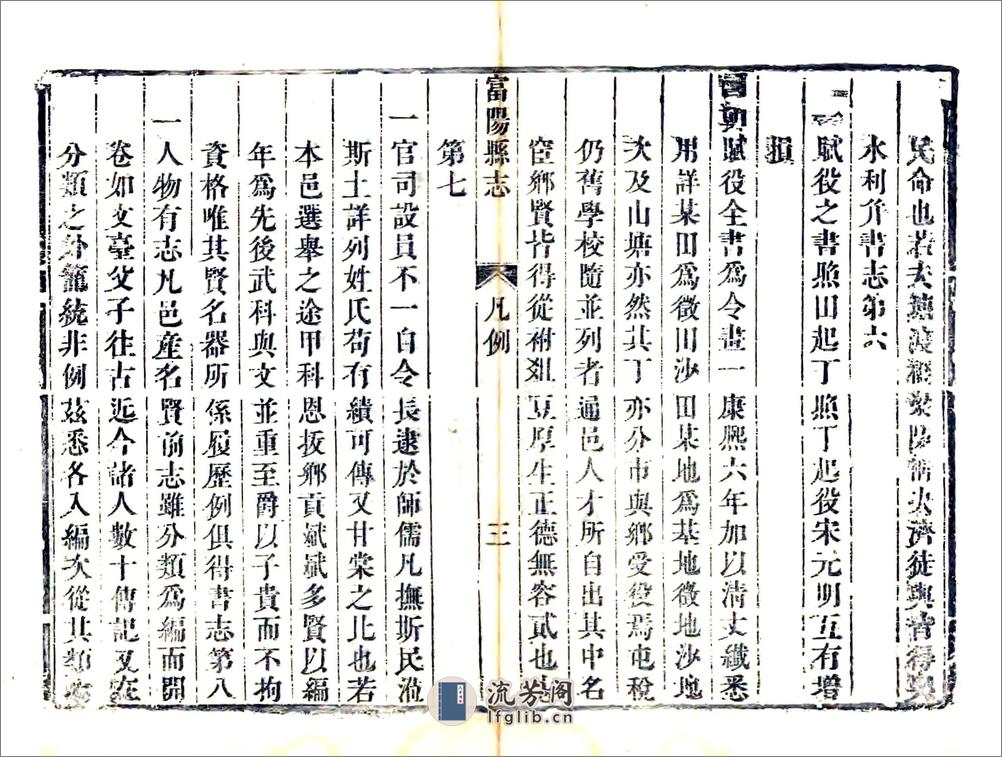 民命也若夫津渡橋梁隄濟徒與皆得與
水利并書志第六
一賦役之書照田起丁照丁起役宋元明互有增
損
國朝賦役全書爲令畫一康熙六年加以清丈纖悉
用詳某田爲徵田沙田某地爲基地徵地沙地
次及山塘亦然其丁亦分市與鄉受役焉屯稅
仍舊學校隨並列者通邑人才所自出其中名
宦鄉賢皆得從祔俎豆厚生正德無容貳也
富陽縣志
凡例
三
第七
一官司設員不一自令長逮於師儒凡撫斯民涖
斯土詳列姓氏苟有績可傳又甘棠之比也若
本邑選舉之途甲科恩拔鄉貢斌斌多賢以編
年爲先後武科與文並重至爵以子貴而不拘
資格唯其賢名器所係履歷例俱得書志第八
一人物有志凡邑產名賢前志雖分類爲編而開
卷如文臺父子往古近今諸人數十傳記又在
分類之外籠統非例茲悉各入編次從其類
流芳阁
lfglib.cn